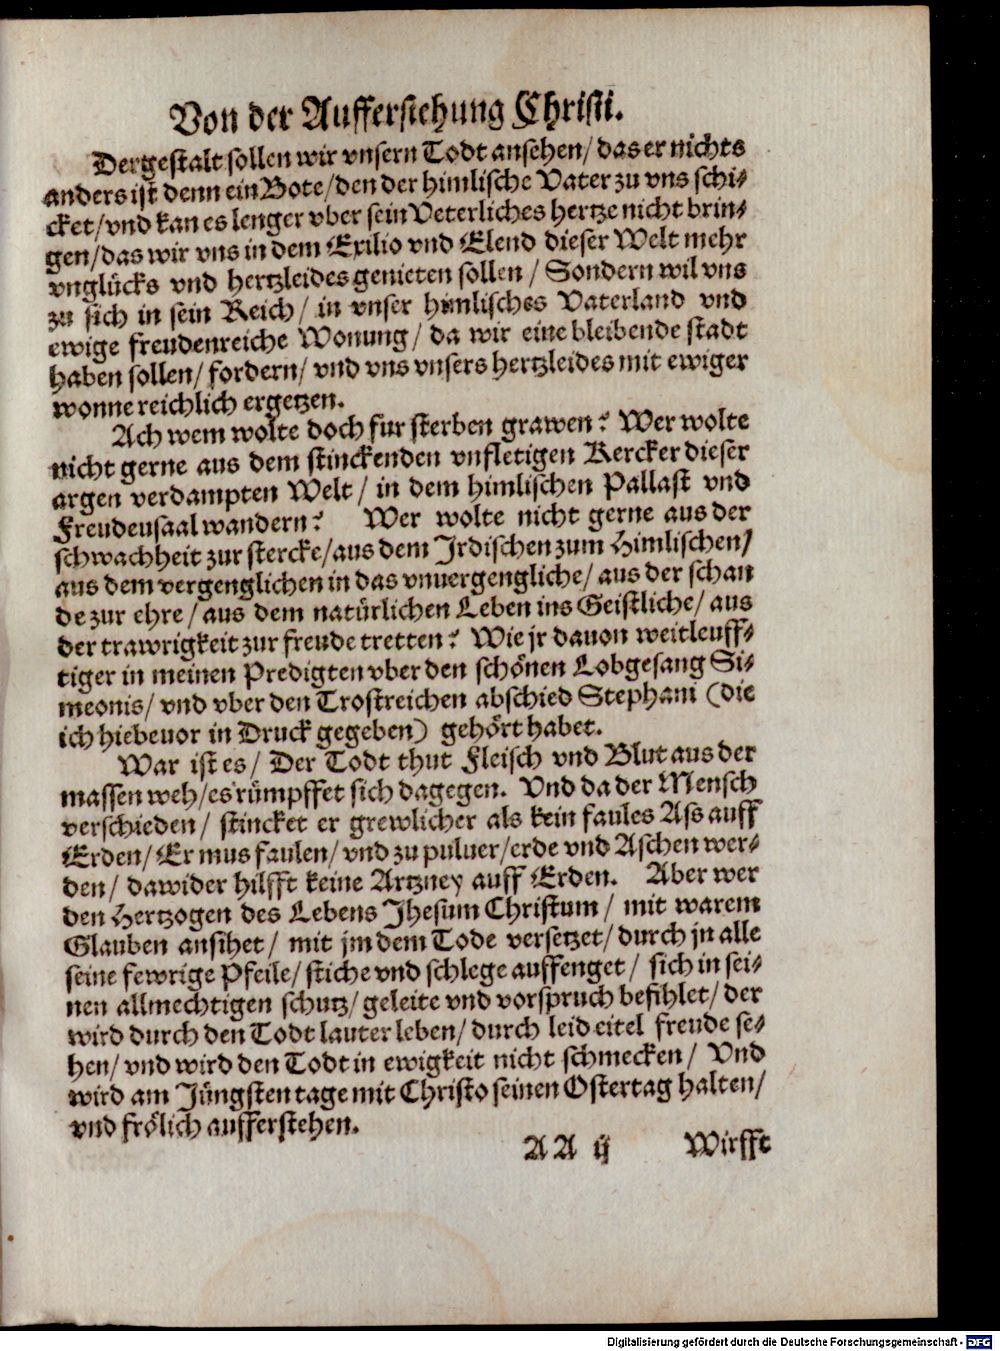 Von der Aufferstehung Christi.
Dergestalt sollen wir vnsern Todt ansehen/ das er nichts
anders ist denn ein Bote/ den der himlische Vater zu vns schi-
cket/ vnd kan es lenger vber sein Veterliches hertze nicht brin-
gen/ das wir vns in dem Exilio vnd Elend dieser Welt mehr
vnglücks vnd hertzleides genieten sollen/ Sondern wil vns
zu sich in sein Reich/ in vnser himlisches Vaterland vnd
ewige freudenreiche Wonung/ da wir eine bleibende stadt
haben sollen/ fordern/ vnd vns vnsers hertzleides mit ewiger
wonne reichlich ergetzen.
Ach wem wolte doch fur sterben grawen? Wer wolte
nicht gerne aus dem stinckenden vnfletigen Kercker dieser
argen verdampten Welt/ in dem himlischen Pallast vnd
Freudensaal wandern? Wer wolte nicht gerne aus der
schwachheit zur stercke/ aus dem Jrdischen zum Himlischen/
aus dem vergenglichen in das vnuergengliche/ aus der schan
de zur ehre/ aus dem natürlichen Leben ins Geistliche/ aus
der trawrigkeit zur freude tretten? Wie jr dauon weitleuff-
tiger in meinen Predigten vber den schönen Lobgesang Si-
meonis/ vnd vber den Trostreichen abschied Stephani (die
ich hiebeuor in Druck gegeben) gehört habet.
War ist es/ Der Todt thut Fleisch vnd Blut aus der
massen weh/ es rümpffet sich dagegen. Vnd da der Mensch
verschieden/ stincket er grewlicher als kein faules Ass auff
Erden/ Er mus faulen/ vnd zu puluer/ erde vnd Aschen wer-
den/ dawider hilfft keine Artzney auff Erden. Aber wer
den Hertzogen des Lebens Jhesum Christum/ mit warem
Glauben ansihet/ mit jm dem Tode versetzet/ durch jn alle
seine fewrige Pfeile/ stiche vnd schlege auffenget/ sich in sei-
nen allmechtigen schutz/ geleite vnd vorspruch befihlet/ der
wird durch den Todt lauter leben/ durch leid eitel freude se-
hen/ vnd wird den Todt in ewigkeit nicht schmecken/ Vnd
wird am Jüngsten tage mit Christo seinen Ostertag halten/
vnd frölich aufferstehen.
AA ij Wirfft
Digitalisierung gefördert durch die Deutsche Forschungsgemeinschaft - DFG